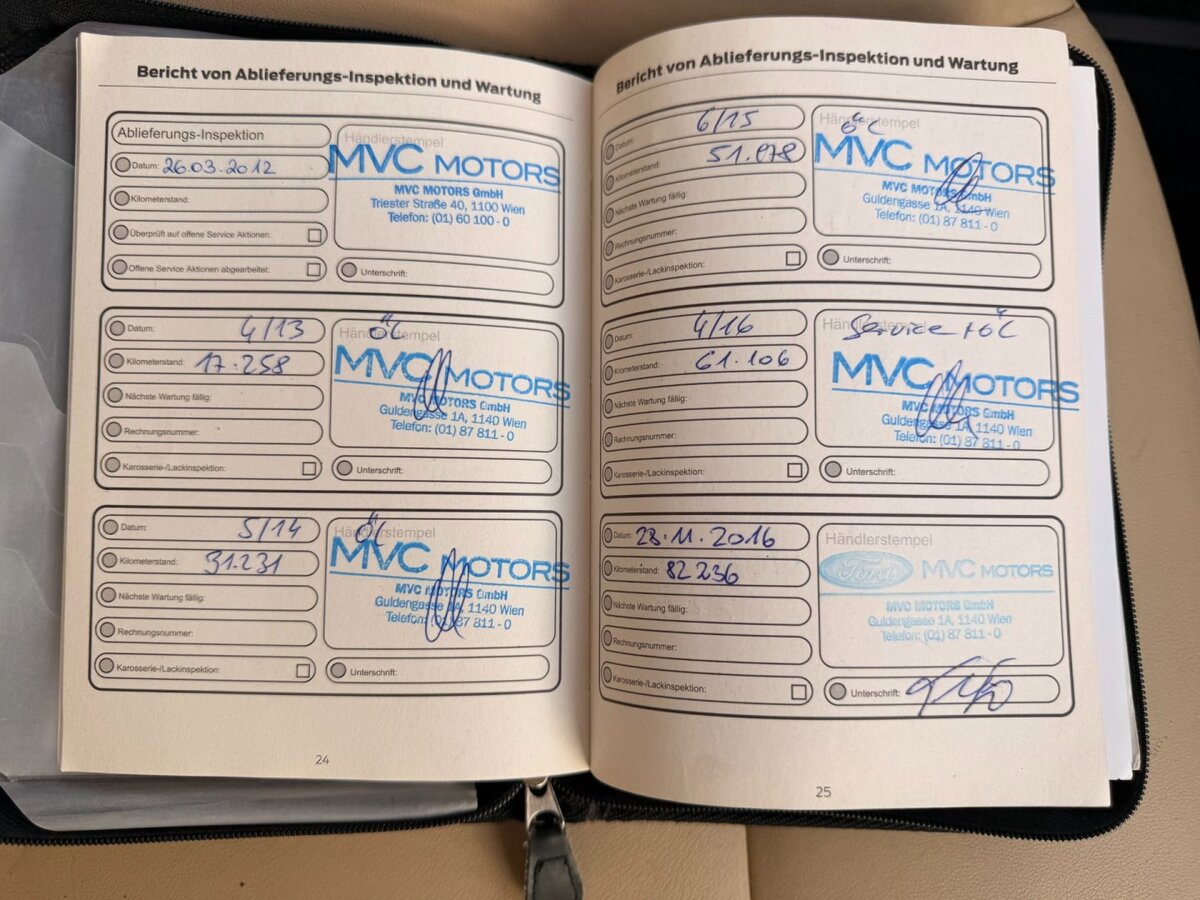 Bericht von Ablieferungs-Inspektion und Wartung
Ablieferungs-Inspektion
Datum: 26.03.2012
Kilometerstand:
Überprüft auf offene Service Aktionen:
Offene Service Aktionen abgearbeitet:
Händlerstempel
MVC MOTORS
MVC MOTORS GmbH
Triester Straße 40, 1100 Wien
Telefon: (01) 60 100 - 0
Unterschrift:
Datum: 4/13
Kilometerstand: 17.258
Nächste Wartung fällig:
Rechnungsnummer:
Karosserie-/Lackinspektion:
Händlerstempel
ÖC
MVC MOTORS
MVC MOTORS GmbH
Guldengasse 1A, 1140 Wien
Telefon: (01) 87 811 - 0
Unterschrift:
Datum: 5/14
Kilometerstand: 31.231
Nächste Wartung fällig:
Rechnungsnummer:
Karosserie-/Lackinspektion:
Händlerstempel
ÖC
MVC MOTORS
MVC MOTORS GmbH
Guldengasse 1A, 1140 Wien
Telefon: (01) 87 811 - 0
Unterschrift:
24
Bericht von Ablieferungs-Inspektion und Wartung
Datum: 6/15
Kilometerstand:
Nächste Wartung fällig:
Rechnungsnummer:
Karosserie-/Lackinspektion:
Händlerstempel
ÖC
MVC MOTORS
MVC MOTORS GmbH
Guldengasse 1A, 1140 Wien
Telefon: (01) 87 811 - 0
Unterschrift:
Datum: 4/16
Kilometerstand: 61.106
Nächste Wartung fällig:
Rechnungsnummer:
Karosserie-/Lackinspektion:
Händlerstempel
Service + ÖC
MVC MOTORS
MVC MOTORS GmbH
Guldengasse 1A, 1140 Wien
Telefon: (01) 87 811 - 0
Unterschrift:
Datum: 28.11.2016
Kilometerstand: 82 236
Nächste Wartung fällig:
Rechnungsnummer:
Karosserie-/Lackinspektion:
Händlerstempel
Ford MVC MOTORS
MVC MOTORS GmbH
Guldengasse 1A, 1140 Wien
Telefon: (01) 87 811 - 0
Unterschrift:
25